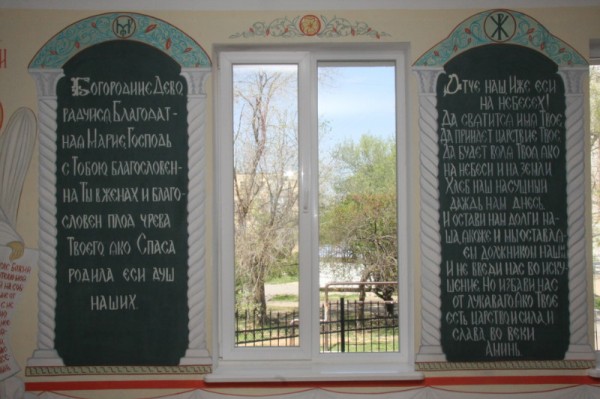 Богородице Дево
радуйся, Благодат-
ная Марие, Господь
с Тобою, благословен-
на Ты в женах и благо-
словен плод чрева
Твоего, яко Спаса
родила еси душ
наших.
Отче наш Иже еси
на небесех!
Да святится имя Твое
Да приидет царствие Твое
Да будет воля Твоя, яко
на небеси и на земли
Хлеб наш насущный
даждь нам днесь,
и остави нам долги на-
ша, якоже и мы оставля-
ем должником нашим
И не введи нас во иску-
шение. Но избави нас
от лукаваго. Яко Твое
есть царство и сила, и
слава во веки
Аминь